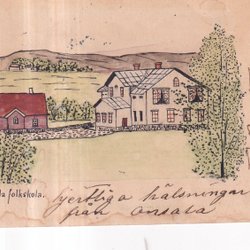 folkskola.
hjertliga hälsningar
från Onsala